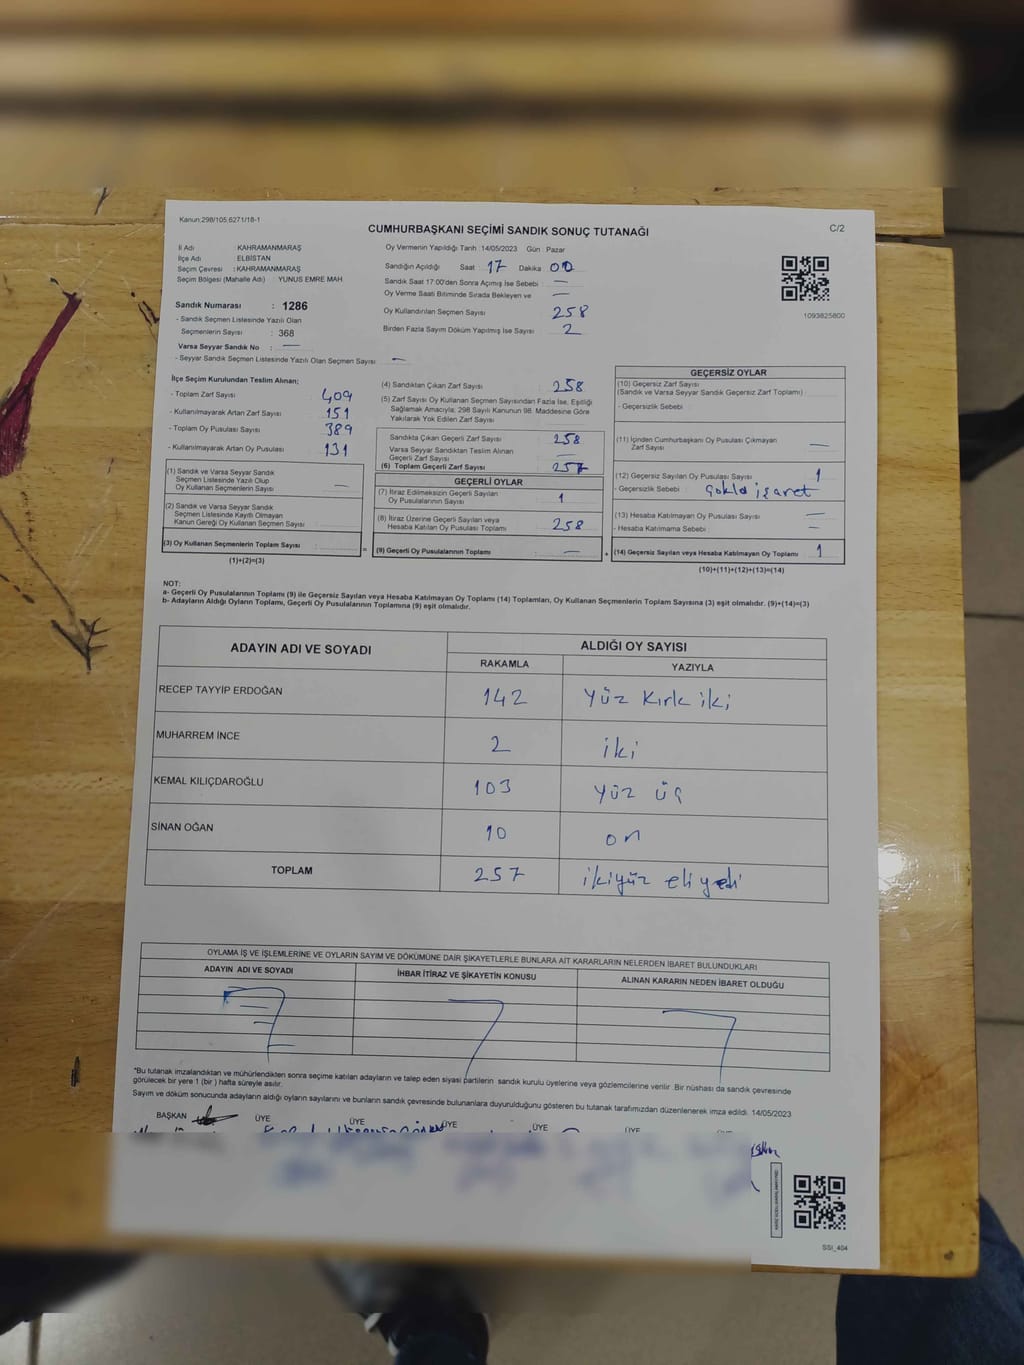 Kanun:298/105,6271/18-1
CUMHURBAŞKANI SEÇİMİ SANDIK SONUÇ TUTANAĞI
C/2
İl Adı : KAHRAMANMARAŞ
İlçe Adı : ELBİSTAN
Seçim Çevresi : KAHRAMANMARAŞ
Seçim Bölgesi (Mahalle Adı) : YUNUS EMRE MAH
Oy Vermenin Yapıldığı Tarih :14/05/2023 Gün : Pazar
Sandığın Açıldığı Saat : 17 Dakika 00
Sandık Saat 17:00'den Sonra Açımış İse Sebebi : —
Oy Verme Saati Bitiminde Sırada Bekleyen ve —
Oy Kullandırılan Seçmen Sayısı 258
Birden Fazla Sayım Döküm Yapılmış İse Sayısı 2
1093825800
Sandık Numarası : 1286
- Sandık Seçmen Listesinde Yazılı Olan
Seçmenlerin Sayısı : 368
Varsa Seyyar Sandık No : —
- Seyyar Sandık Seçmen Listesinde Yazılı Olan Seçmen Sayısı : —
İlçe Seçim Kurulundan Teslim Alınan;
- Toplam Zarf Sayısı : 409
- Kullanılmayarak Artan Zarf Sayısı : 151
- Toplam Oy Pusulası Sayısı : 389
- Kullanılmayarak Artan Oy Pusulası Sayısı : 131
(1) Sandık ve Varsa Seyyar Sandık
Seçmen Listesinde Yazılı Olup
Oy Kullanan Seçmenlerin Sayısı : —
(2) Sandık ve Varsa Seyyar Sandık
Seçmen Listesinde Kayıtlı Olmayan
Kanun Gereği Oy Kullanan Seçmen Sayısı :
(3) Oy Kullanan Seçmenlerin Toplam Sayısı :
(1)+(2)=(3)
(4) Sandıktan Çıkan Zarf Sayısı : 258
(5) Zarf Sayısı Oy Kullanan Seçmen Sayısından Fazla İse, Eşitliği
Sağlamak Amacıyla; 298 Sayılı Kanunun 98. Maddesine Göre
Yakılarak Yok Edilen Zarf Sayısı :
Sandıkta Çıkan Geçerli Zarf Sayısı : 258
Varsa Seyyar Sandıktan Teslim Alınan
Geçerli Zarf Sayısı : —
(6) Toplam Geçerli Zarf Sayısı : 257
GEÇERLİ OYLAR
(7) İtiraz Edilmeksizin Geçerli Sayılan
Oy Pusulalarının Sayısı : 1
(8) İtiraz Üzerine Geçerli Sayılan veya
Hesaba Katılan Oy Pusulası Toplamı : 258
(9) Geçerli Oy Pusulalarının Toplamı : —
GEÇERSİZ OYLAR
(10) Geçersiz Zarf Sayısı
(Sandık ve Varsa Seyyar Sandık Geçersiz Zarf Toplamı) :
- Geçersizlik Sebebi :
(11) İçinden Cumhurbaşkanı Oy Pusulası Çıkmayan
Zarf Sayısı : —
(12) Geçersiz Sayılan Oy Pusulası Sayısı : 1
- Geçersizlik Sebebi : Çokla işaret
(13) Hesaba Katılmayan Oy Pusulası Sayısı : —
- Hesaba Katılmama Sebebi : —
(14) Geçersiz Sayılan veya Hesaba Katılmayan Oy Toplamı : 1
(10)+(11)+(12)+(13)=(14)
NOT:
a- Geçerli Oy Pusulalarının Toplamı (9) ile Geçersiz Sayılan veya Hesaba Katılmayan Oy Toplamı (14) Toplamları, Oy Kullanan Seçmenlerin Toplam Sayısına (3) eşit olmalıdır. (9)+(14)=(3)
b- Adayların Aldığı Oyların Toplamı, Geçerli Oy Pusulalarının Toplamına (9) eşit olmalıdır.
ADAYIN ADI VE SOYADI
ALDIĞI OY SAYISI
RAKAMLA YAZIYLA
RECEP TAYYİP ERDOĞAN 142 Yüz Kırk iki
MUHARREM İNCE 2 iki
KEMAL KILIÇDAROĞLU 103 Yüz üç
SİNAN OĞAN 10 on
TOPLAM 257 ikiyüz eli yedi
OYLAMA İŞ VE İŞLEMLERİNE VE OYLARIN SAYIM VE DÖKÜMÜNE DAİR ŞİKAYETLERLE BUNLARA AİT KARARLARIN NELERDEN İBARET BULUNDUKLARI
ADAYIN ADI VE SOYADI İHBAR İTİRAZ VE ŞİKAYETİN KONUSU ALINAN KARARIN NEDEN İBARET OLDUĞU
*Bu tutanak imzalandıktan ve mühürlendikten sonra seçime katılan adayların ve talep eden siyasi partilerin sandık kurulu üyelerine veya gözlemcilerine verilir. Bir nüshası da sandık çevresinde
görülecek bir yere 1 (bir ) hafta süreyle asılır.
Sayım ve döküm sonucunda adayların aldığı oyların sayılarını ve bunların sandık çevresinde bulunanlara duyurulduğunu gösteren bu tutanak tarafımızdan düzenlenerek imza edildi. 14/05/2023
BAŞKAN ÜYE ÜYE ÜYE ÜYE ÜYE ÜYE
SSI_404